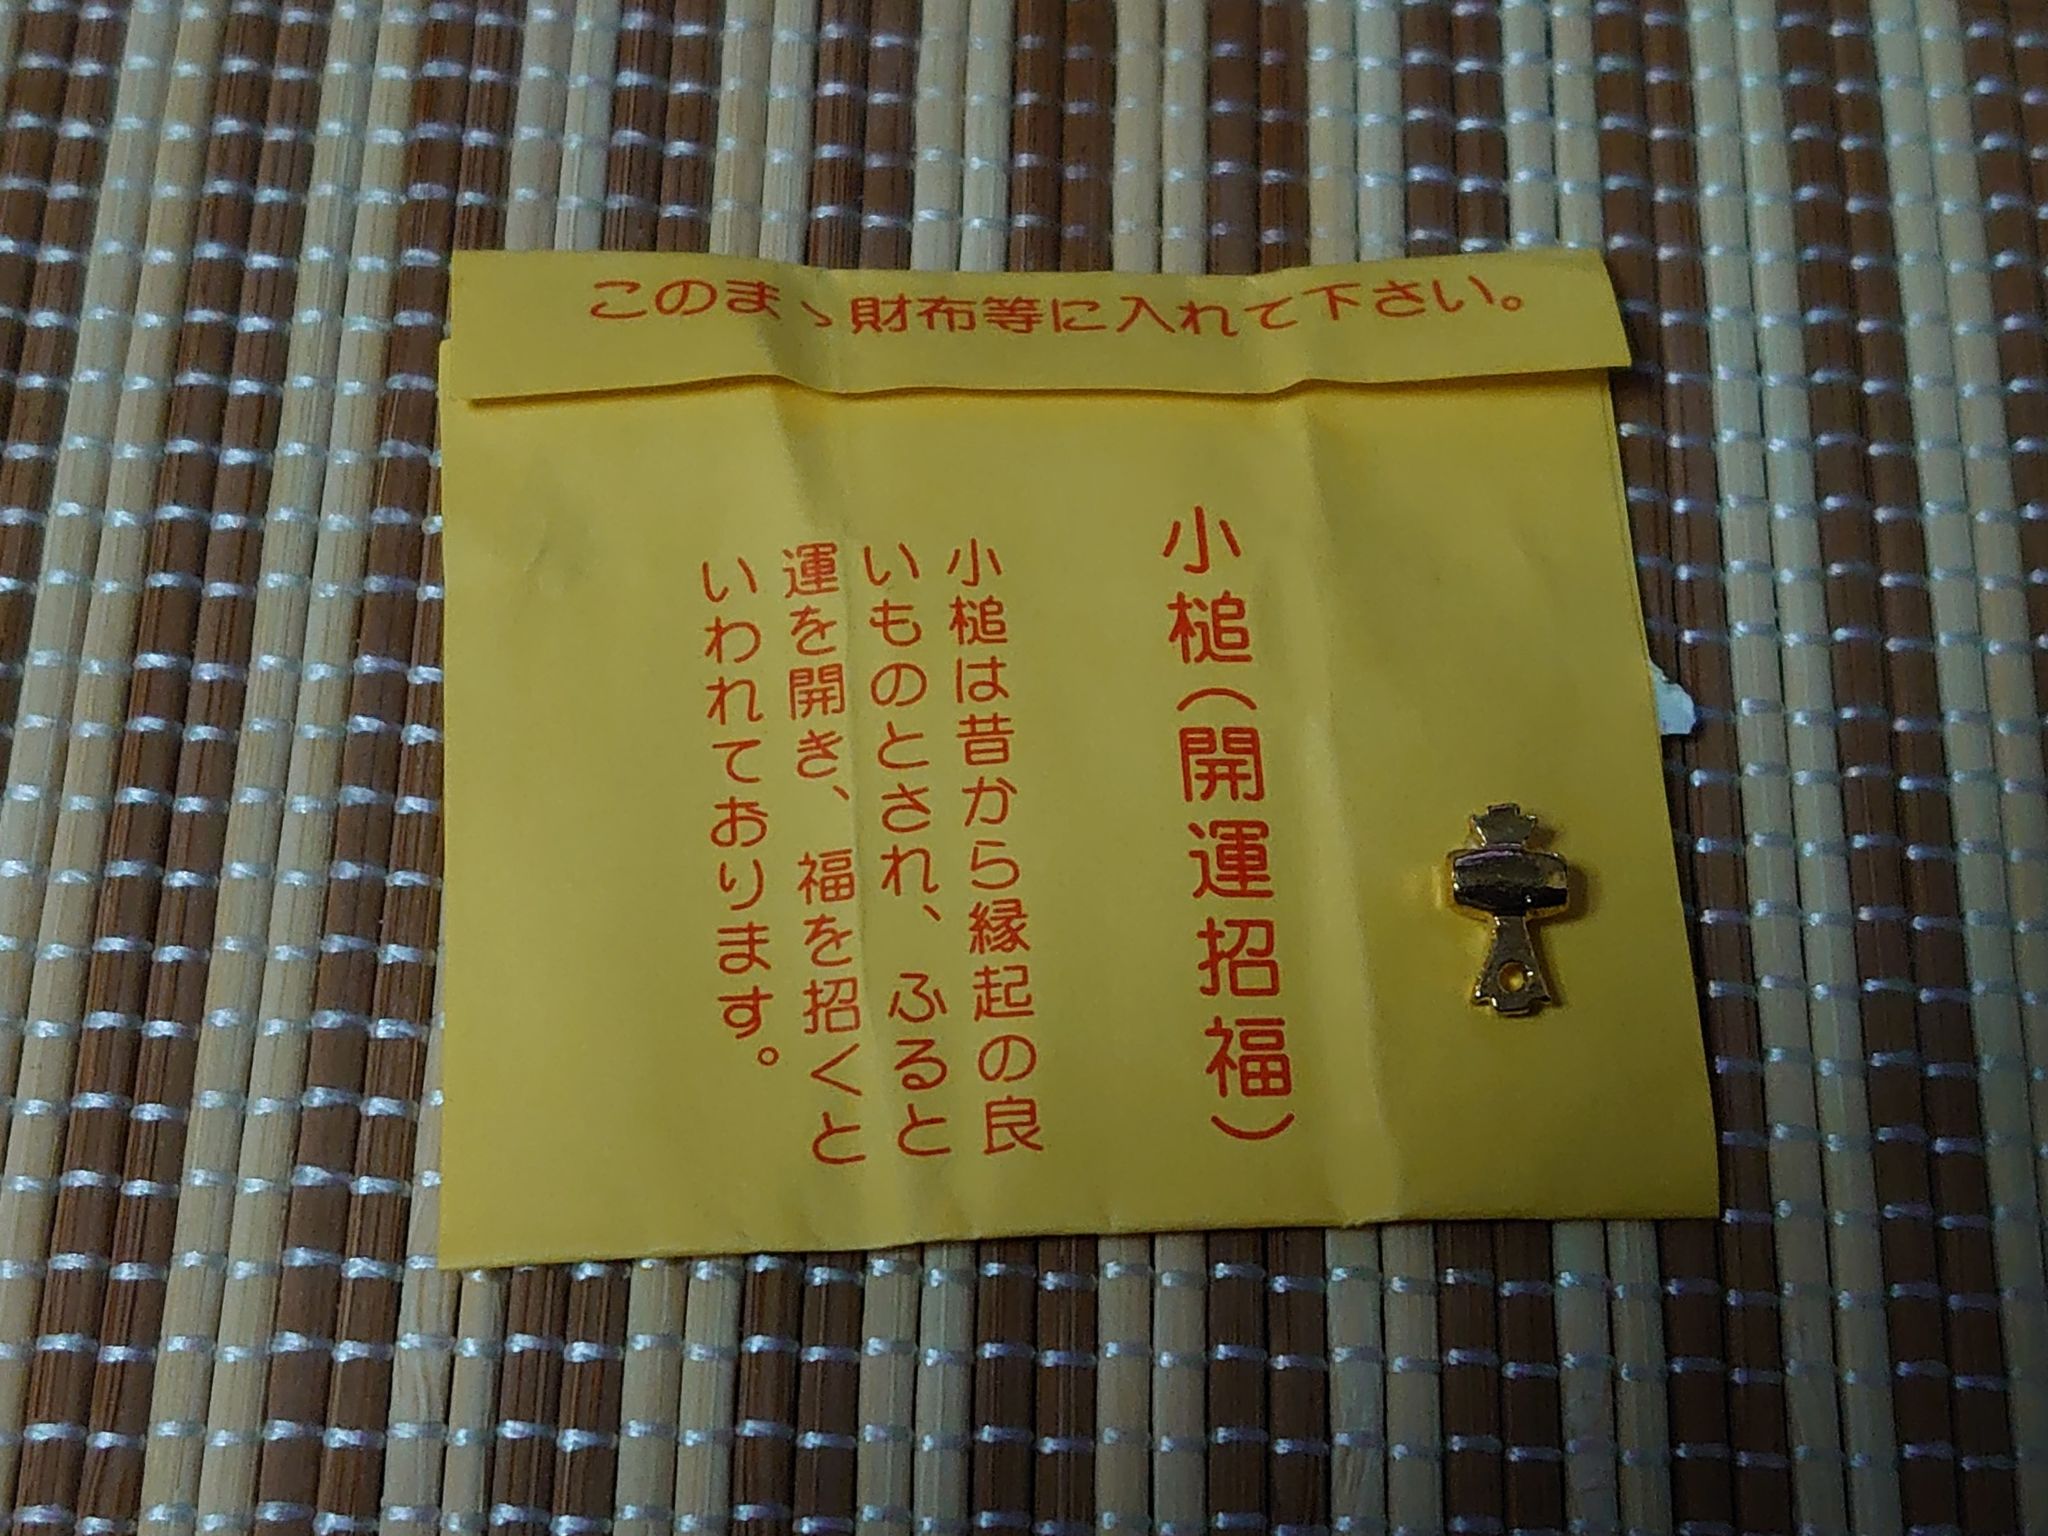 このまゝ財布等に入れて下さい。
小槌(開運招福)
小槌は昔から縁起の良
いものとされ、ふると
運を開き、福を招くと
いわれております。